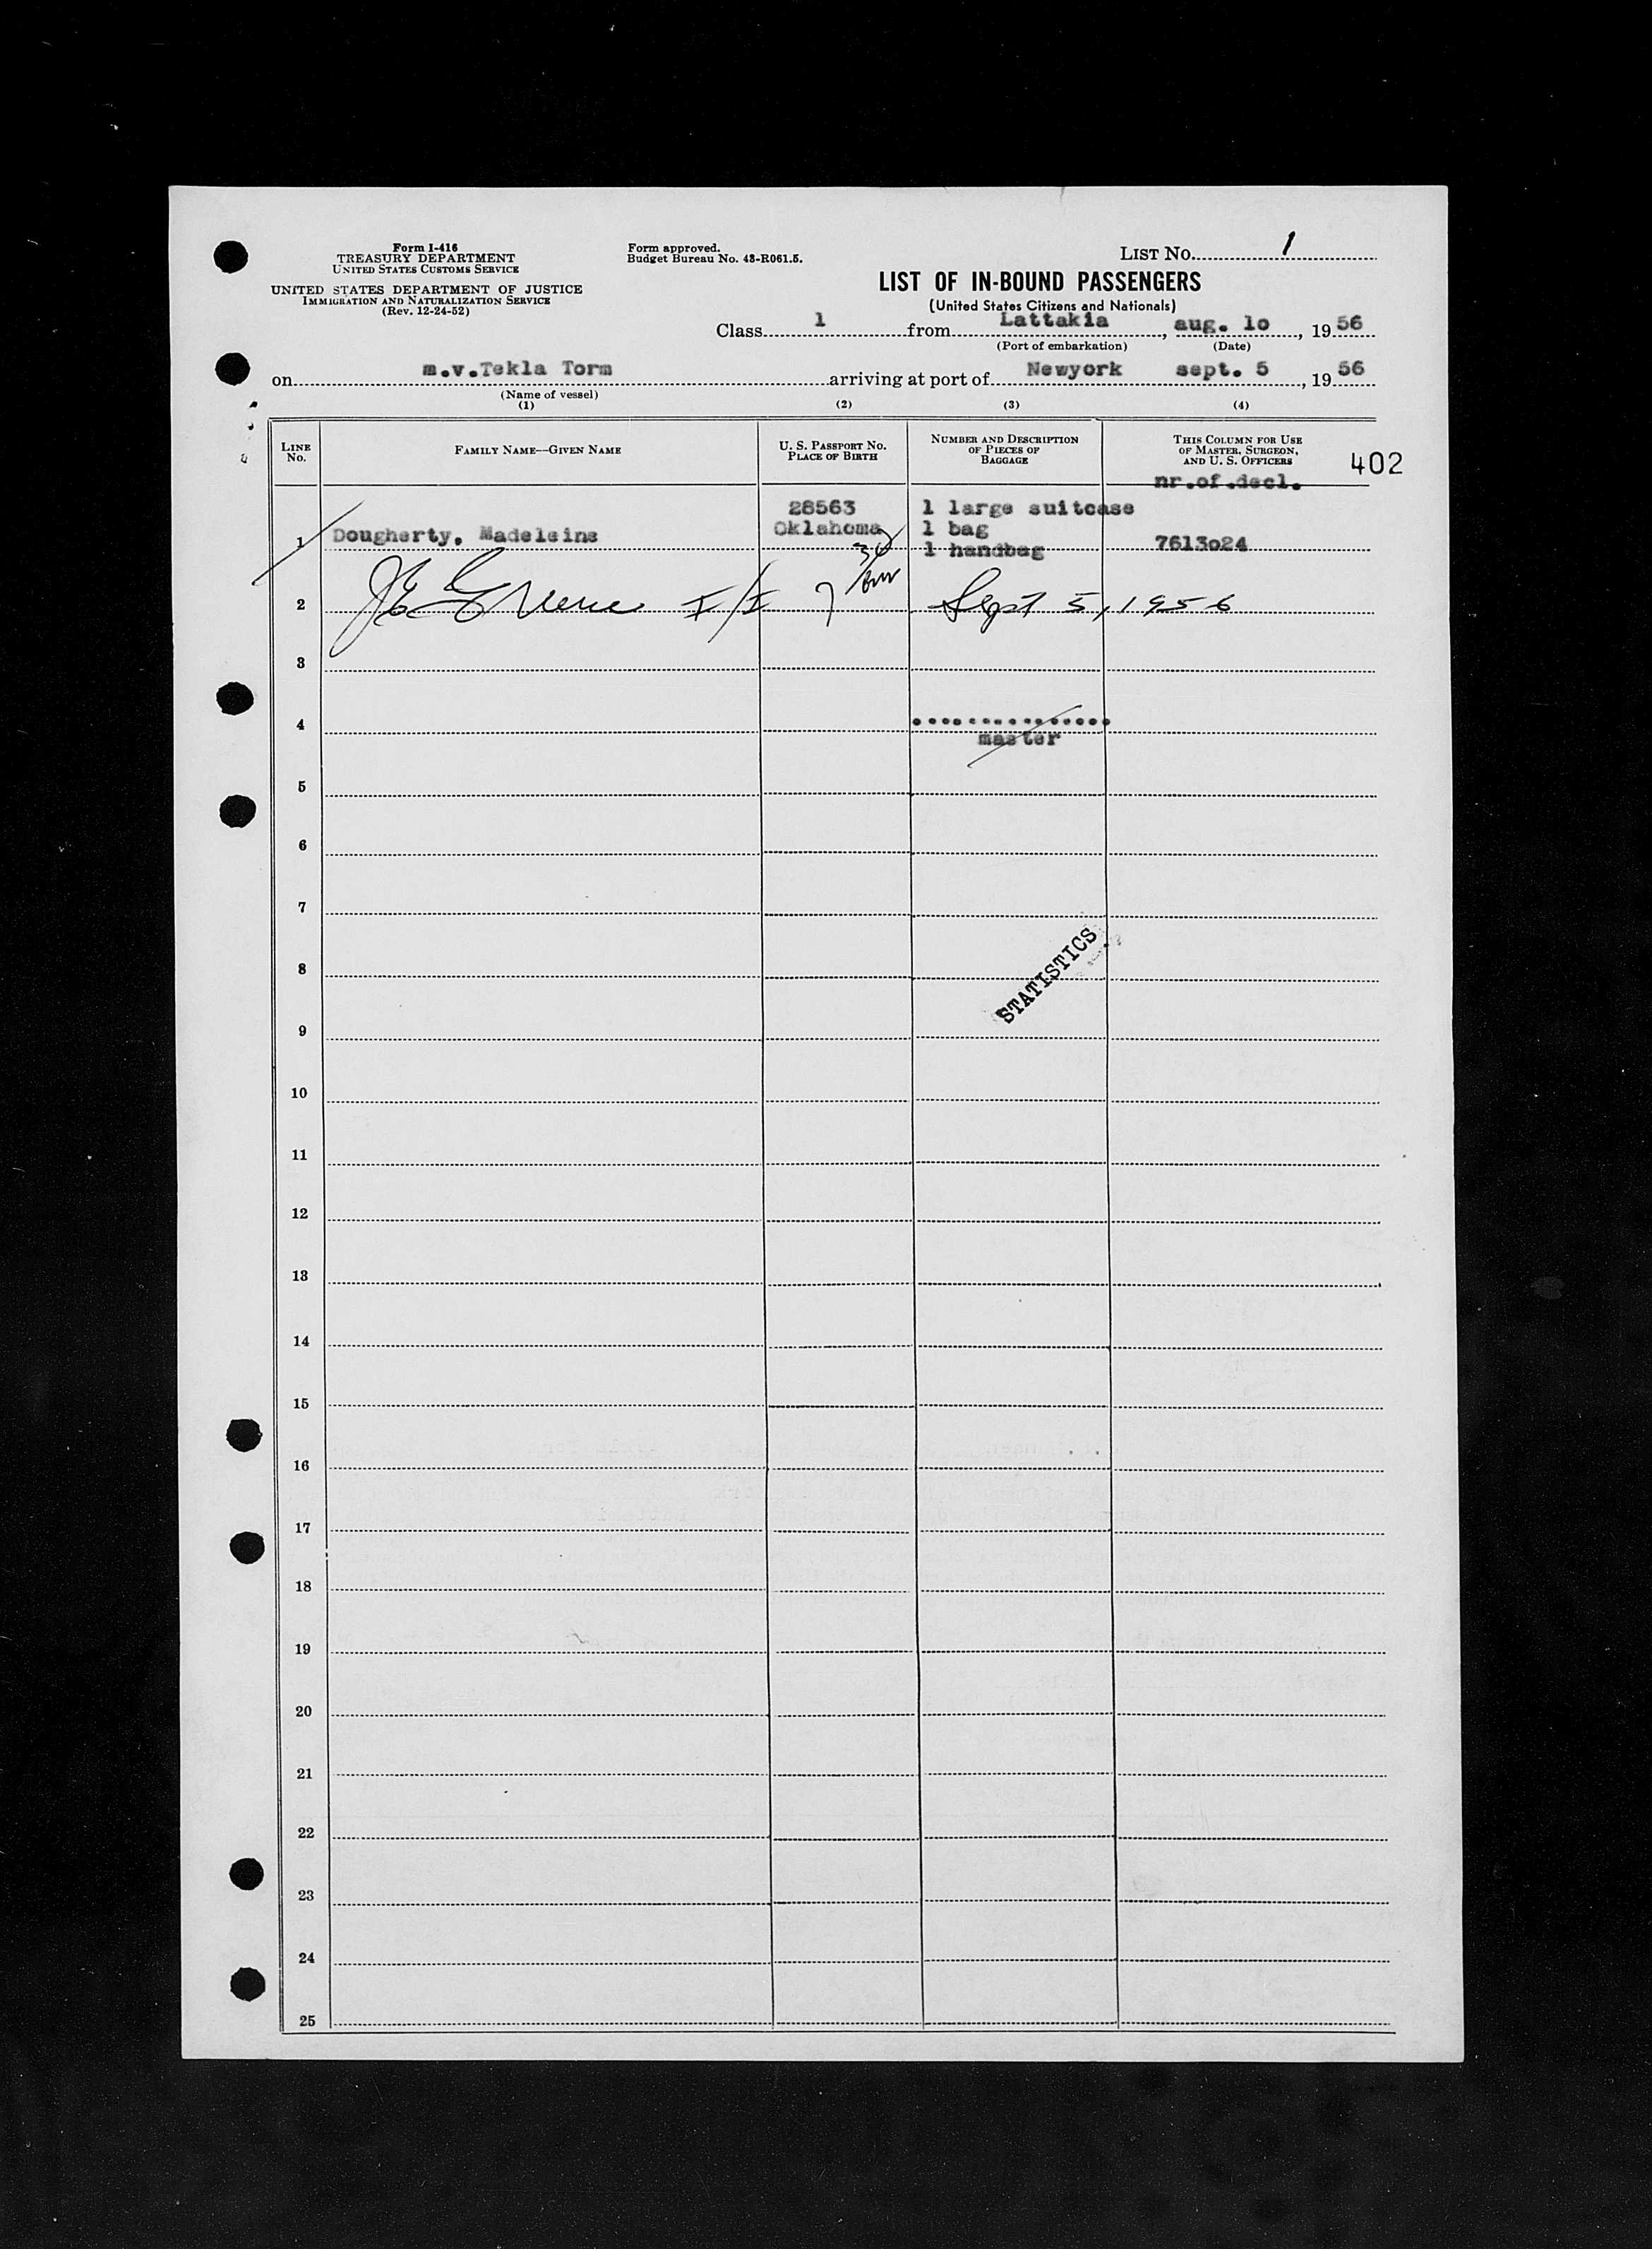 Form I-416
TREASURY DEPARTMENT
UNITED STATES CUSTOMS SERVICE
UNITED STATES DEPARTMENT OF JUSTICE
IMMIGRATION AND NATURALIZATION SERVICE
(Rev. 12-24-52)
Form approved.
Budget Bureau No. 43-R061.5.
LIST NO. 1
LIST OF IN-BOUND PASSENGERS
(United States Citizens and Nationals)
Class 1 from Lattakia, aug. 1o, 19 56
(Port of embarkation) (Date)
on m.v.Tekla Torm arriving at port of Newyork sept. 5, 19 56
(Name of vessel)
(1) (2) (3) (4)
LINE No. FAMILY NAME—GIVEN NAME U. S. PASSPORT NO. PLACE OF BIRTH NUMBER AND DESCRIPTION OF PIECES OF BAGGAGE THIS COLUMN FOR USE OF MASTER, SURGEON, AND U. S. OFFICERS
402
nr.of.decl.
28563 1 large suitcase
Oklahoma 1 bag
1 Dougherty, Madeleine 1 handbag 7613o24
2 Sept 5, 1956
3
4
master
5
6
7
8
STATISTICS
9
10
11
12
13
14
15
16
17
18
19
20
21
22
23
24
25